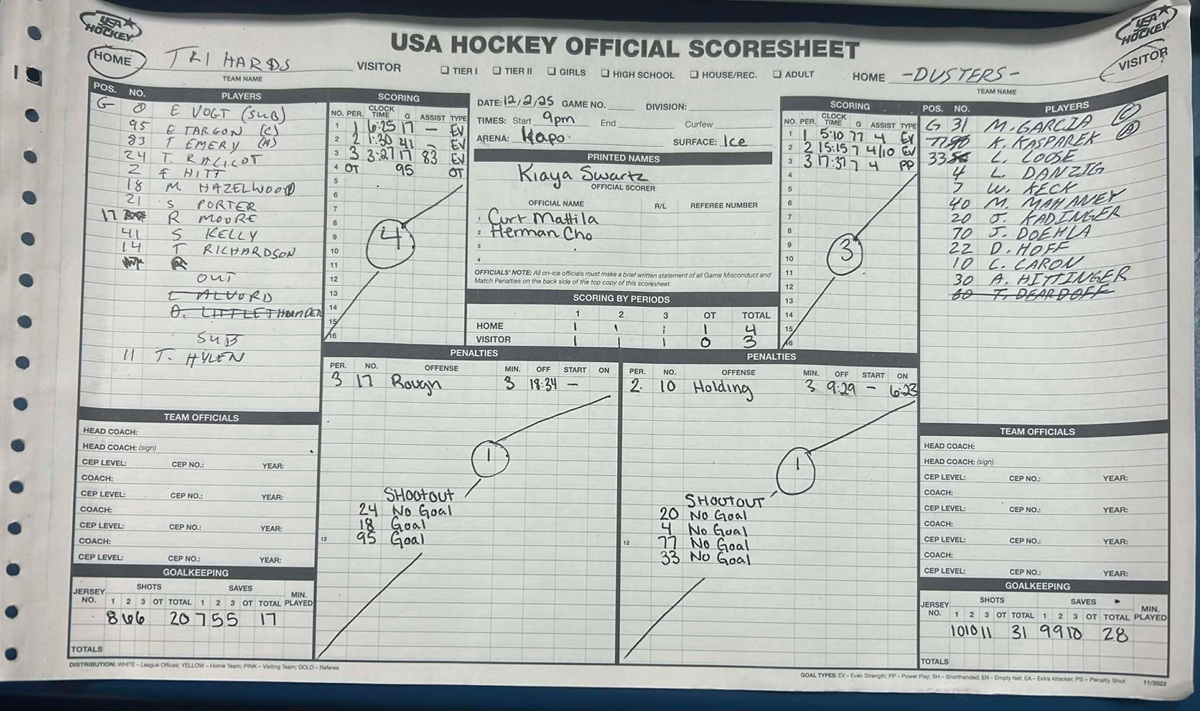 USA HOCKEY
USA HOCKEY
USA HOCKEY OFFICIAL SCORESHEET
HOME TRI HARDS VISITOR ☐ TIER I ☐ TIER II ☐ GIRLS ☐ HIGH SCHOOL ☐ HOUSE/REC. ☐ ADULT HOME -DUSTERS- VISITOR
TEAM NAME
TEAM NAME
POS. NO. PLAYERS
G 0 E VOGT (SUB)
95 E TARGON (C)
83 T EMERY (A)
24 T. RALICOT
2 F HITT
18 M HAZELWOOD
21 S PORTER
17 R MOORE
41 S KELLY
14 T RICHARDSON
OUT
L ALVORD
SUB
11 T. HYLEN
SCORING
NO. PER. CLOCK TIME G ASSIST TYPE
1 1 6:25 17 — EV
2 2 1:30 41 — EV
3 3 3:27 17 83 EV
4 OT 95 OT
5
6
7
8
9
10
11
12
13
14
15
16
4
DATE: 12/2/25 GAME NO. DIVISION:
TIMES: Start 9pm End Curfew
ARENA: Hapo SURFACE: Ice
PRINTED NAMES
Kiaya Swartz
OFFICIAL SCORER
OFFICIAL NAME R/L REFEREE NUMBER
1 Curt Mattila
2 Herman Cho
3
4
OFFICIALS' NOTE: All on-ice officials must make a brief written statement of all Game Misconduct and
Match Penalties on the back side of the top copy of this scoresheet.
SCORING BY PERIODS
1 2 3 OT TOTAL
HOME 1 1 1 1 4
VISITOR 1 1 1 0 3
SCORING
NO. PER. CLOCK TIME G ASSIST TYPE
1 1 5:10 77 4 EV
2 2 15:15 7 4/10 EV
3 3 17:37 7 4 PP
4
5
6
7
8
9
10
11
12
13
14
15
16
3
POS. NO. PLAYERS
G 31 M. GARCIA C
77 K. KASPAREK A
33 L. LOOSE
4 L. DANZIG
7 W. KECK
40 M. MAHANEY
20 J. KADINGER
70 J. DOEHLA
22 D. HOFF
10 L. CARON
30 A. HITTINGER
60 T. DEARDOFF
PENALTIES
PER. NO. OFFENSE MIN. OFF START ON
3 17 Rough 3 18:34 —
1
SHOOTOUT
24 No Goal
18 Goal
12 95 Goal
PENALTIES
PER. NO. OFFENSE MIN. OFF START ON
2. 10 Holding 3 9:29 — 6:23
1
SHOOTOUT
20 No Goal
4 No Goal
12 77 No Goal
33 No Goal
TEAM OFFICIALS
HEAD COACH:
HEAD COACH: (sign)
CEP LEVEL: CEP NO.: YEAR:
COACH:
CEP LEVEL: CEP NO.: YEAR:
COACH:
CEP LEVEL: CEP NO.: YEAR:
COACH:
CEP LEVEL: CEP NO.: YEAR:
GOALKEEPING
JERSEY NO. SHOTS 1 2 3 OT TOTAL SAVES 1 2 3 OT TOTAL MIN. PLAYED
8 6 6 20 7 5 5 17
TOTALS
TEAM OFFICIALS
HEAD COACH:
HEAD COACH: (sign)
CEP LEVEL: CEP NO.: YEAR:
COACH:
CEP LEVEL: CEP NO.: YEAR:
COACH:
CEP LEVEL: CEP NO.: YEAR:
COACH:
CEP LEVEL: CEP NO.: YEAR:
GOALKEEPING
JERSEY NO. SHOTS 1 2 3 OT TOTAL SAVES 1 2 3 OT TOTAL MIN. PLAYED
10 10 11 31 9 9 10 28
TOTALS
DISTRIBUTION: WHITE – League Offices; YELLOW – Home Team; PINK – Visiting Team; GOLD – Referee
GOAL TYPES: EV – Even Strength; PP – Power Play; SH – Shorthanded; EN – Empty Net; EA – Extra Attacker; PS – Penalty Shot 11/2022